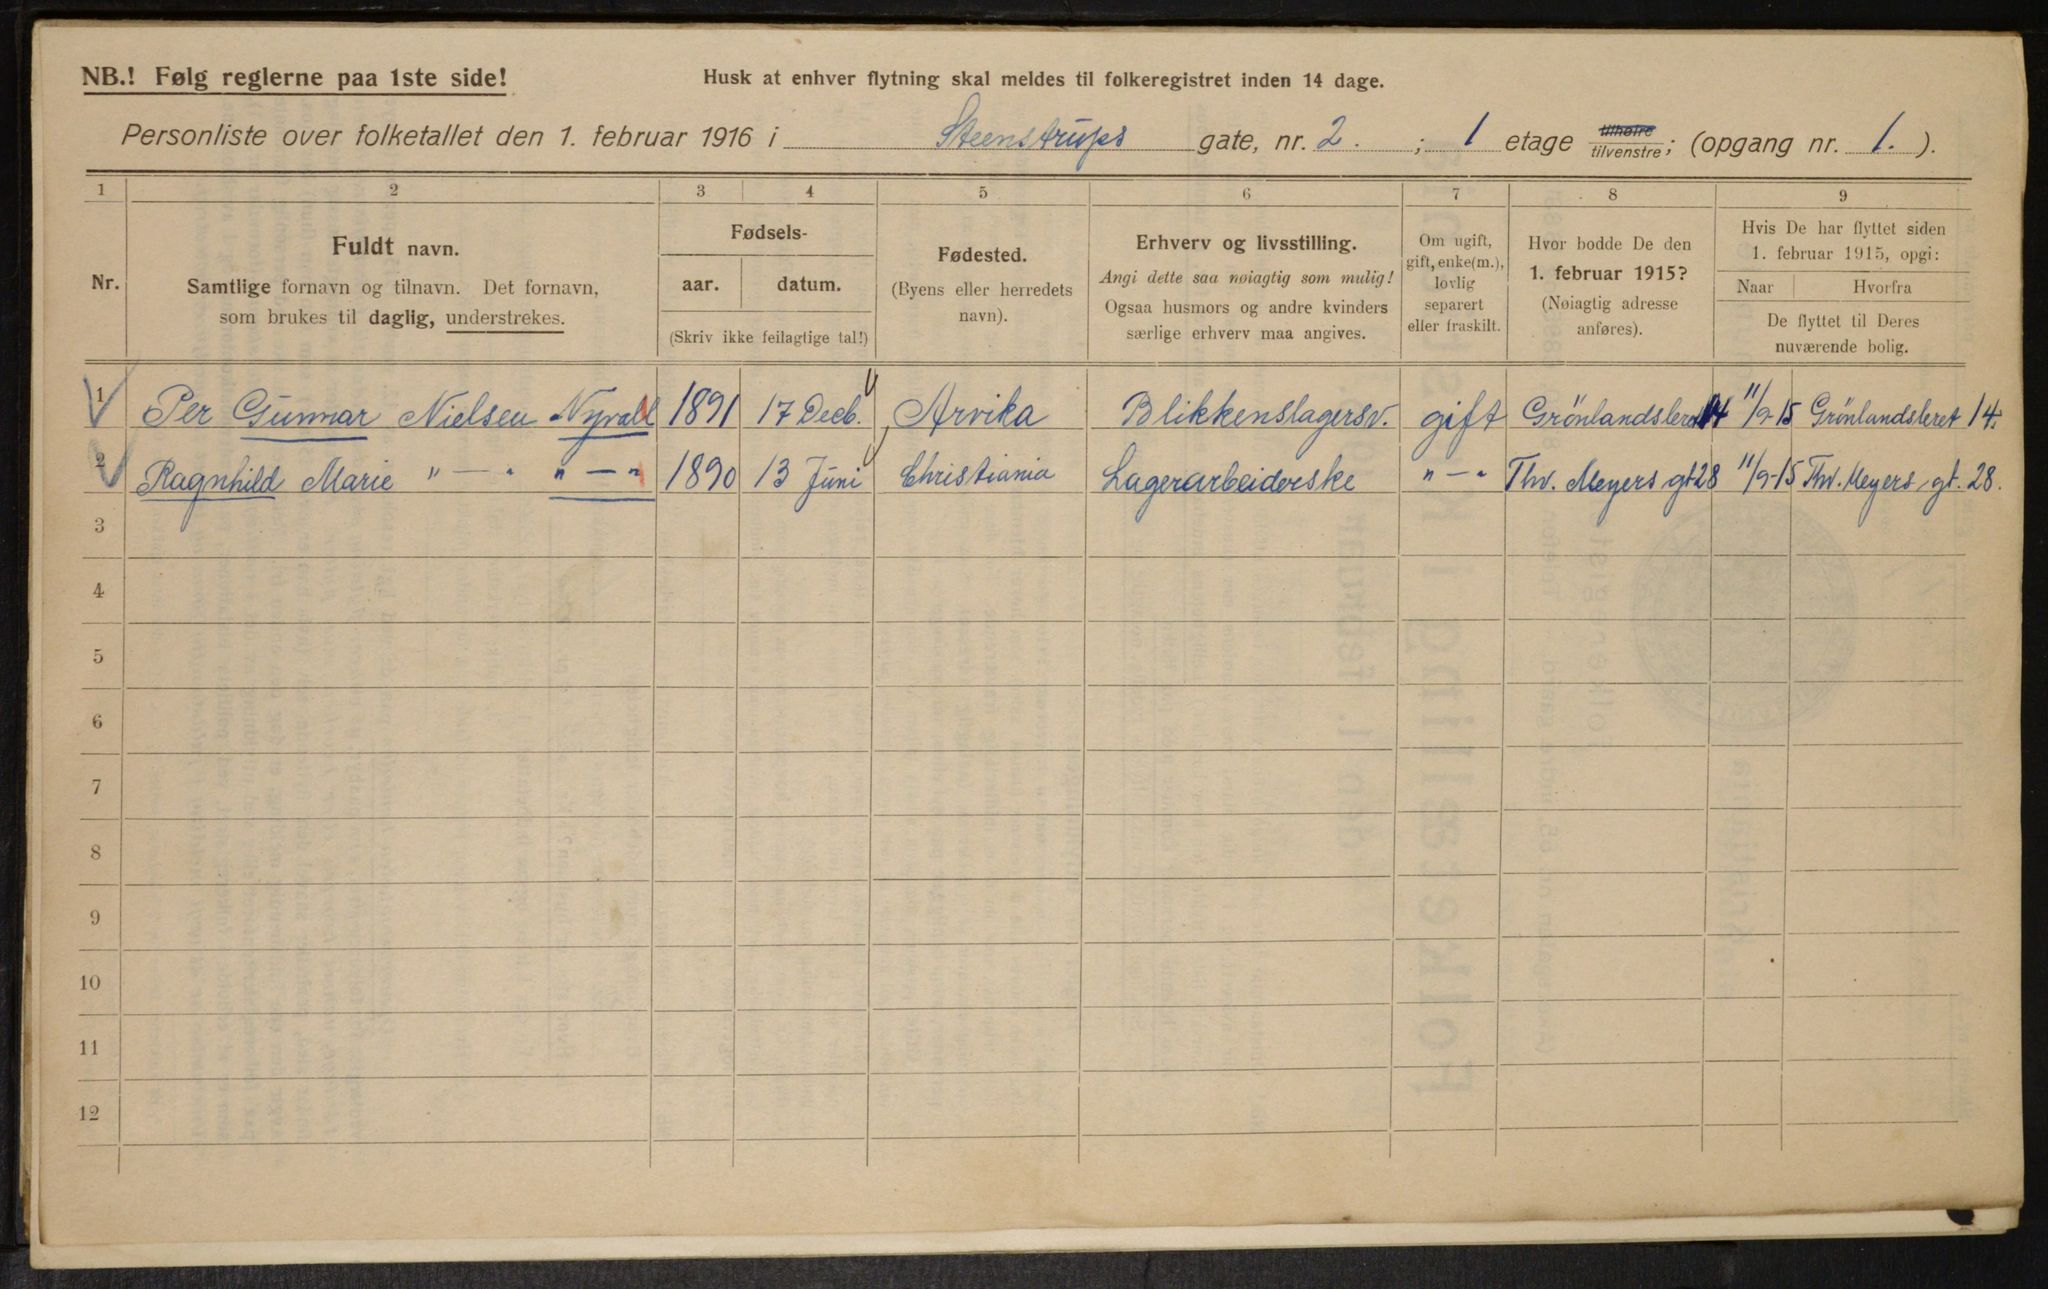 NB.! Følg reglerne paa 1ste side!
Husk at enhver flytning skal meldes til folkeregistret inden 14 dage.
Personliste over folketallet den 1. februar 1916 i Steenstrups gate, nr. 2. ; 1 etage tilhøire tilvenstre; (opgang nr. 1. ).
1 2 3 4 5 6 7 8 9
Nr.
Fuldt navn.
Samtlige fornavn og tilnavn. Det fornavn,
som brukes til daglig, understrekes.
Fødsels-
aar. datum.
(Skriv ikke feilagtige tal!)
Fødested.
(Byens eller herredets
navn).
Erhverv og livsstilling.
Angi dette saa nøiagtig som mulig!
Ogsaa husmors og andre kvinders
særlige erhverv maa angives.
Om ugift,
gift, enke(m.),
lovlig
separert
eller fraskilt.
Hvor bodde De den
1. februar 1915?
(Nøiagtig adresse
anføres).
Hvis De har flyttet siden
1. februar 1915, opgi:
Naar Hvorfra
De flyttet til Deres
nuværende bolig.
1 Per Gunnar Nielsen Nyvall 1891 17 Decb. Arvika Blikkenslagersv. gift Grönlandsleret 14 11/9-15 Grönlandsleret 14.
2 Ragnhild Marie " — " " — " 1890 13 Juni Christiania Lagerarbeiderske " — " Thv. Meyers gt 28 11/9-15 Thv. Meyers gt. 28.
3
4
5
6
7
8
9
10
11
12